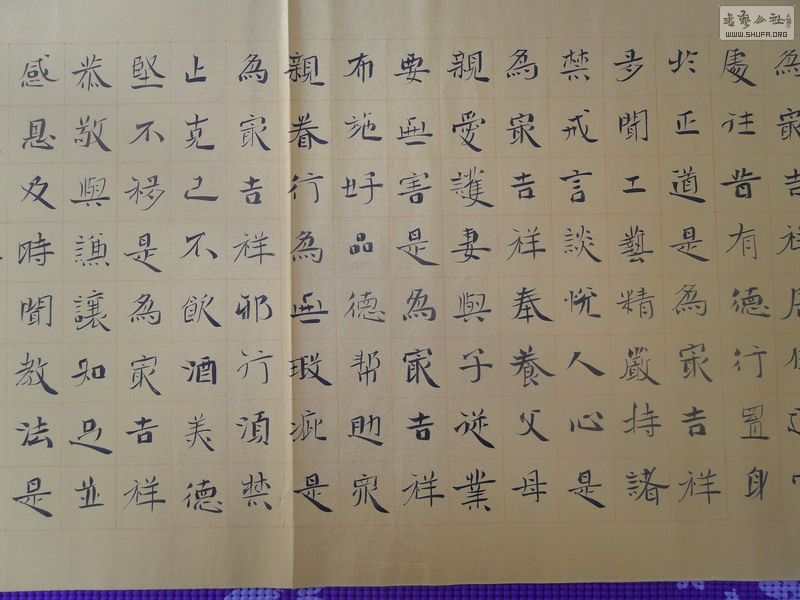 為最吉祥居住適
處往昔有德行置身
於正道是為最吉祥
多聞工藝精嚴持諸
禁戒言談悅人心是
為最吉祥奉養父母
親愛護妻與子從業
要無害是為最吉祥
布施好品德帮助眾
親眷行為無瑕疵是
為最吉祥邪行須禁
止克己不飲酒美德
堅不移是為最吉祥
恭敬與謙讓知足並
感恩及時聞教法是
書藝公社
WWW.SHUFA.ORG